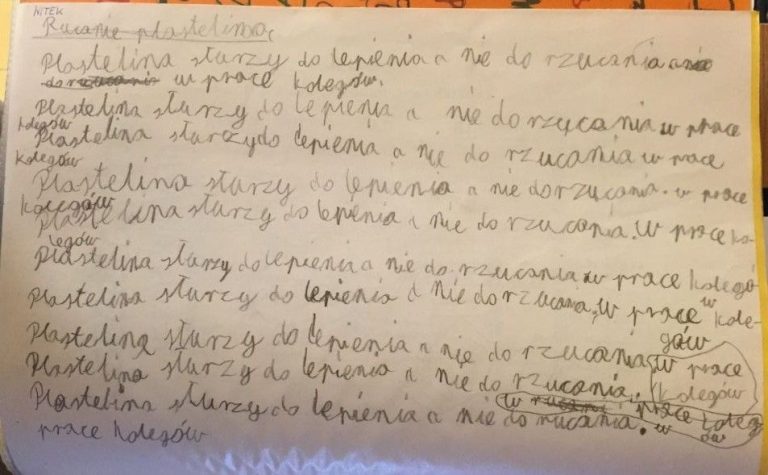 NITEK
Rucanie plasteliną
Plastelina słurzy do lepienia a nie do rzucania
do rzucania w prace kolegów.
Plastelina słurzy do lepienia a nie do rzycania w prace
kolegów
Plastelina słurzy do lepienia a nie do rzucania w prace
kolegów
Plastelina słurzy do lepienia a nie do rzucania. w prace
kolegów
Plastelina słurzy do lepienia a nie do rzucania. w prace ko-
legów
Plastelina słurzy do lepienia a nie do rzucania w prace kolegó
w
Plastelina słurzy do lepienia a nie do rzucania, w prace kole-
gów
Plastelina słurzy do lepienia a nie do rzucania w prace
kolegów
Plastelina słurzy do lepienia a nie do rzucania.
w prace koleg
ów
Plastelina słurzy do lepienia a nie do rucania. w
prace kolegów